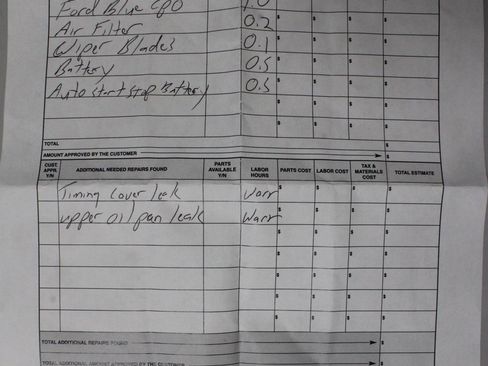 Ford Blue CPO 1.0 $ $ $ $
Air Filter 0.2 $ $ $ $
Wiper Blades 0.1 $ $ $ $
Battery 0.5 $ $ $ $
Auto start stop Battery 0.5 $ $ $ $
$ $ $ $
$ $ $ $
TOTAL $
AMOUNT APPROVED BY THE CUSTOMER $
CUST. APPR. Y/N ADDITIONAL NEEDED REPAIRS FOUND PARTS AVAILABLE Y/N LABOR HOURS PARTS COST LABOR COST TAX & MATERIALS COST TOTAL ESTIMATE
Timing cover leak Warr $ $ $ $
upper oil pan leak Warr $ $ $ $
$ $ $ $
$ $ $ $
$ $ $ $
$ $ $ $
$ $ $ $
TOTAL ADDITIONAL REPAIRS FOUND $
TOTAL ADDITIONAL AMOUNT APPROVED BY THE CUSTOMER $